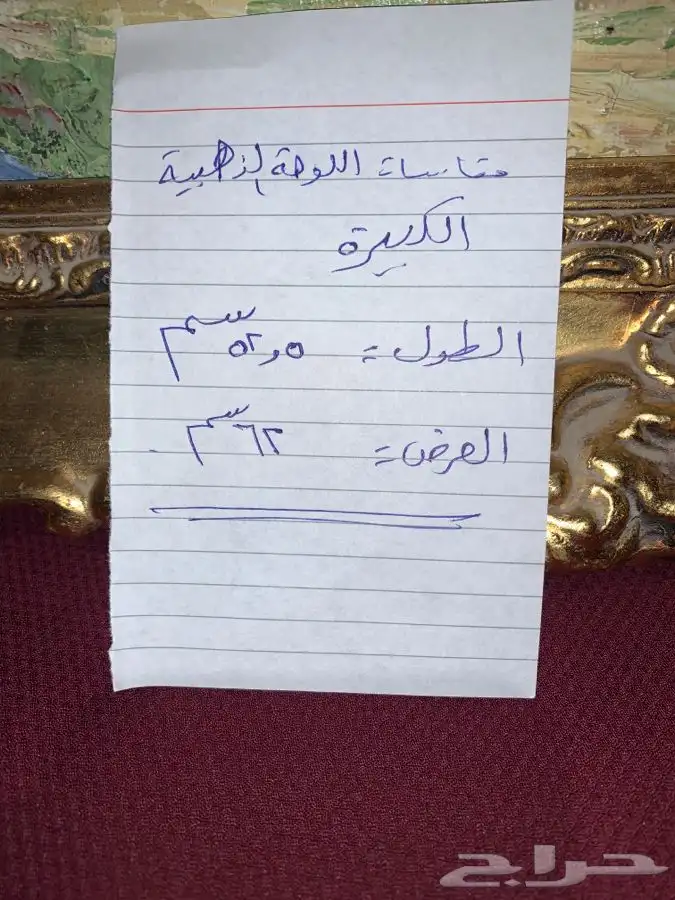 مقاسات اللوحة الذهبية
الكبيرة
الطول = ٥٢٫٥ سم
العرض = ٦٢ سم
حراج